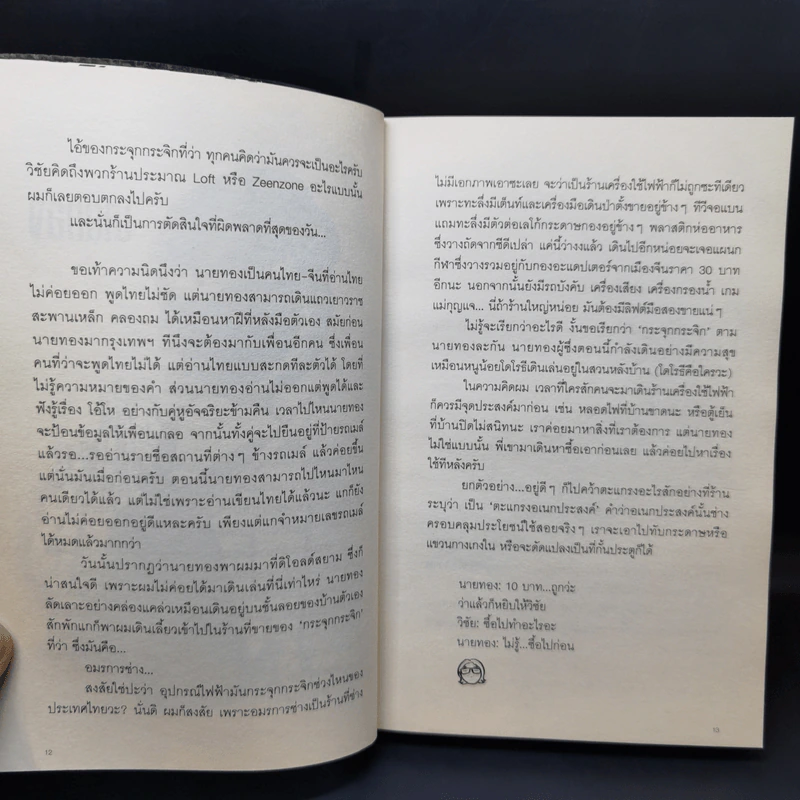 ไอ้ของกระจุกกระจิกที่ว่า ทุกคนคิดว่ามันควรจะเป็นอะไรครับ
วิชัยคิดถึงพวกร้านประมาณ Loft หรือ Zeenzone อะไรแบบนั้น
ผมก็เลยตอบตกลงไปครับ
และนั่นก็เป็นการตัดสินใจที่ผิดพลาดที่สุดของวัน...
ขอเท้าความนิดนึงว่า นายทองเป็นคนไทย-จีนที่อ่านไทย
ไม่ค่อยออก พูดไทยไม่ชัด แต่นายทองสามารถเดินแถวเยาวราช
สะพานเหล็ก คลองถม ได้เหมือนหาฝีที่หลังมือตัวเอง สมัยก่อน
นายทองมากรุงเทพฯ ทีนึงจะต้องมากับเพื่อนอีกคน ซึ่งเพื่อน
คนที่ว่าจะพูดไทยไม่ได้ แต่อ่านไทยแบบสะกดทีละตัวได้ โดยที่
ไม่รู้ความหมายของคำ ส่วนนายทองอ่านไม่ออกแต่พูดได้และ
ฟังรู้เรื่อง โอ้โห อย่างกับคู่หูอัจฉริยะข้ามคืน เวลาไปไหนนายทอง
จะป้อนข้อมูลให้เพื่อนเกลอ จากนั้นทั้งคู่จะไปยืนอยู่ที่ป้ายรถเมล์
แล้วรอ...รออ่านรายชื่อสถานที่ต่างๆ ข้างรถเมล์ แล้วค่อยขึ้น
แต่นั่นมันเมื่อก่อนครับ ตอนนี้นายทองสามารถไปไหนมาไหน
คนเดียวได้แล้ว แต่ไม่ใช่เพราะอ่านเขียนไทยได้แล้วนะ แกก็ยัง
อ่านไม่ค่อยออกอยู่ดีแหละครับ เพียงแต่แกจำหมายเลขรถเมล์
ได้หมดแล้วมากกว่า
วันนั้นปรากฏว่านายทองพาผมมาที่ดิโอลด์สยาม ซึ่งก็
น่าสนใจดี เพราะผมไม่ค่อยได้มาเดินเล่นที่นี่เท่าไหร่ นายทอง
ลัดเลาะอย่างคล่องแคล่วเหมือนเดินอยู่บนชั้นลอยของบ้านตัวเอง
สักพักแกก็พาผมเดินเลี้ยวเข้าไปในร้านที่ขายของ ‘กระจุกกระจิก’
ที่ว่า ซึ่งมันคือ...
อมรการช่าง...
สงสัยใช่ปะว่า อุปกรณ์ไฟฟ้ามันกระจุกกระจิกช่วงไหนของ
ประเทศไทยวะ? นั่นดิ ผมก็สงสัย เพราะอมรการช่างเป็นร้านที่ช่าง
12
ไม่มีเอกภาพเอาซะเลย จะว่าเป็นร้านเครื่องใช้ไฟฟ้าก็ไม่ถูกซะทีเดียว
เพราะทะลึ่งมีเต็นท์และเครื่องมือเดินป่าตั้งขายอยู่ข้างๆ ทีวีจอแบน
แถมทะลึ่งมีตัวต่อเลโก้กระดาษกองอยู่ข้างๆ พลาสติกห่ออาหาร
ซึ่งวางถัดจากซีดีเปล่า แค่นี้ว่างงแล้ว เดินไปอีกหน่อยจะเจอแผนก
กีฬาซึ่งวางรวมอยู่กับกองอะแดปเตอร์จากเมืองจีนราคา 30 บาท
อีกนะ นอกจากนั้นยังมีรถบังคับ เครื่องเสียง เครื่องกรองน้ำ เกม
แม่กุญแจ... นี่ถ้าร้านใหญ่หน่อย มันต้องมีลิฟต์มือสองขายแน่ๆ
ไม่รู้จะเรียกว่าอะไรดี งั้นขอเรียกว่า ‘กระจุกกระจิก’ ตาม
นายทองละกัน นายทองผู้ซึ่งตอนนี้กำลังเดินอย่างมีความสุข
เหมือนหนูน้อยโดโรธีเดินเล่นอยู่ในสวนหลังบ้าน (โดโรธีคือใครวะ)
ในความคิดผม เวลาที่ใครสักคนจะมาเดินร้านเครื่องใช้ไฟฟ้า
ก็ควรมีจุดประสงค์มาก่อน เช่น หลอดไฟที่บ้านขาดนะ หรือตู้เย็น
ที่บ้านปิดไม่สนิทนะ เราค่อยมาหาสิ่งที่เราต้องการ แต่นายทอง
ไม่ใช่แบบนั้น พี่เขามาเดินหาซื้อเอาก่อนเลย แล้วค่อยไปหาเรื่อง
ใช้ทีหลังครับ
ยกตัวอย่าง...อยู่ดีๆ ก็ไปคว้าตะแกรงอะไรสักอย่างที่ร้าน
ระบุว่า เป็น ‘ตะแกรงอเนกประสงค์’ คำว่าอเนกประสงค์นั้นช่าง
ครอบคลุมประโยชน์ใช้สอยจริงๆ เราจะเอาไปทับกระดาษหรือ
แขวนกางเกงใน หรือจะดัดแปลงเป็นที่กั้นประตูก็ได้
นายทอง: 10 บาท...ถูกว่ะ
ว่าแล้วก็หยิบให้วิชัย
วิชัย: ซื้อไปทำอะไรอะ
นายทอง: ไม่รู้...ซื้อไปก่อน
13